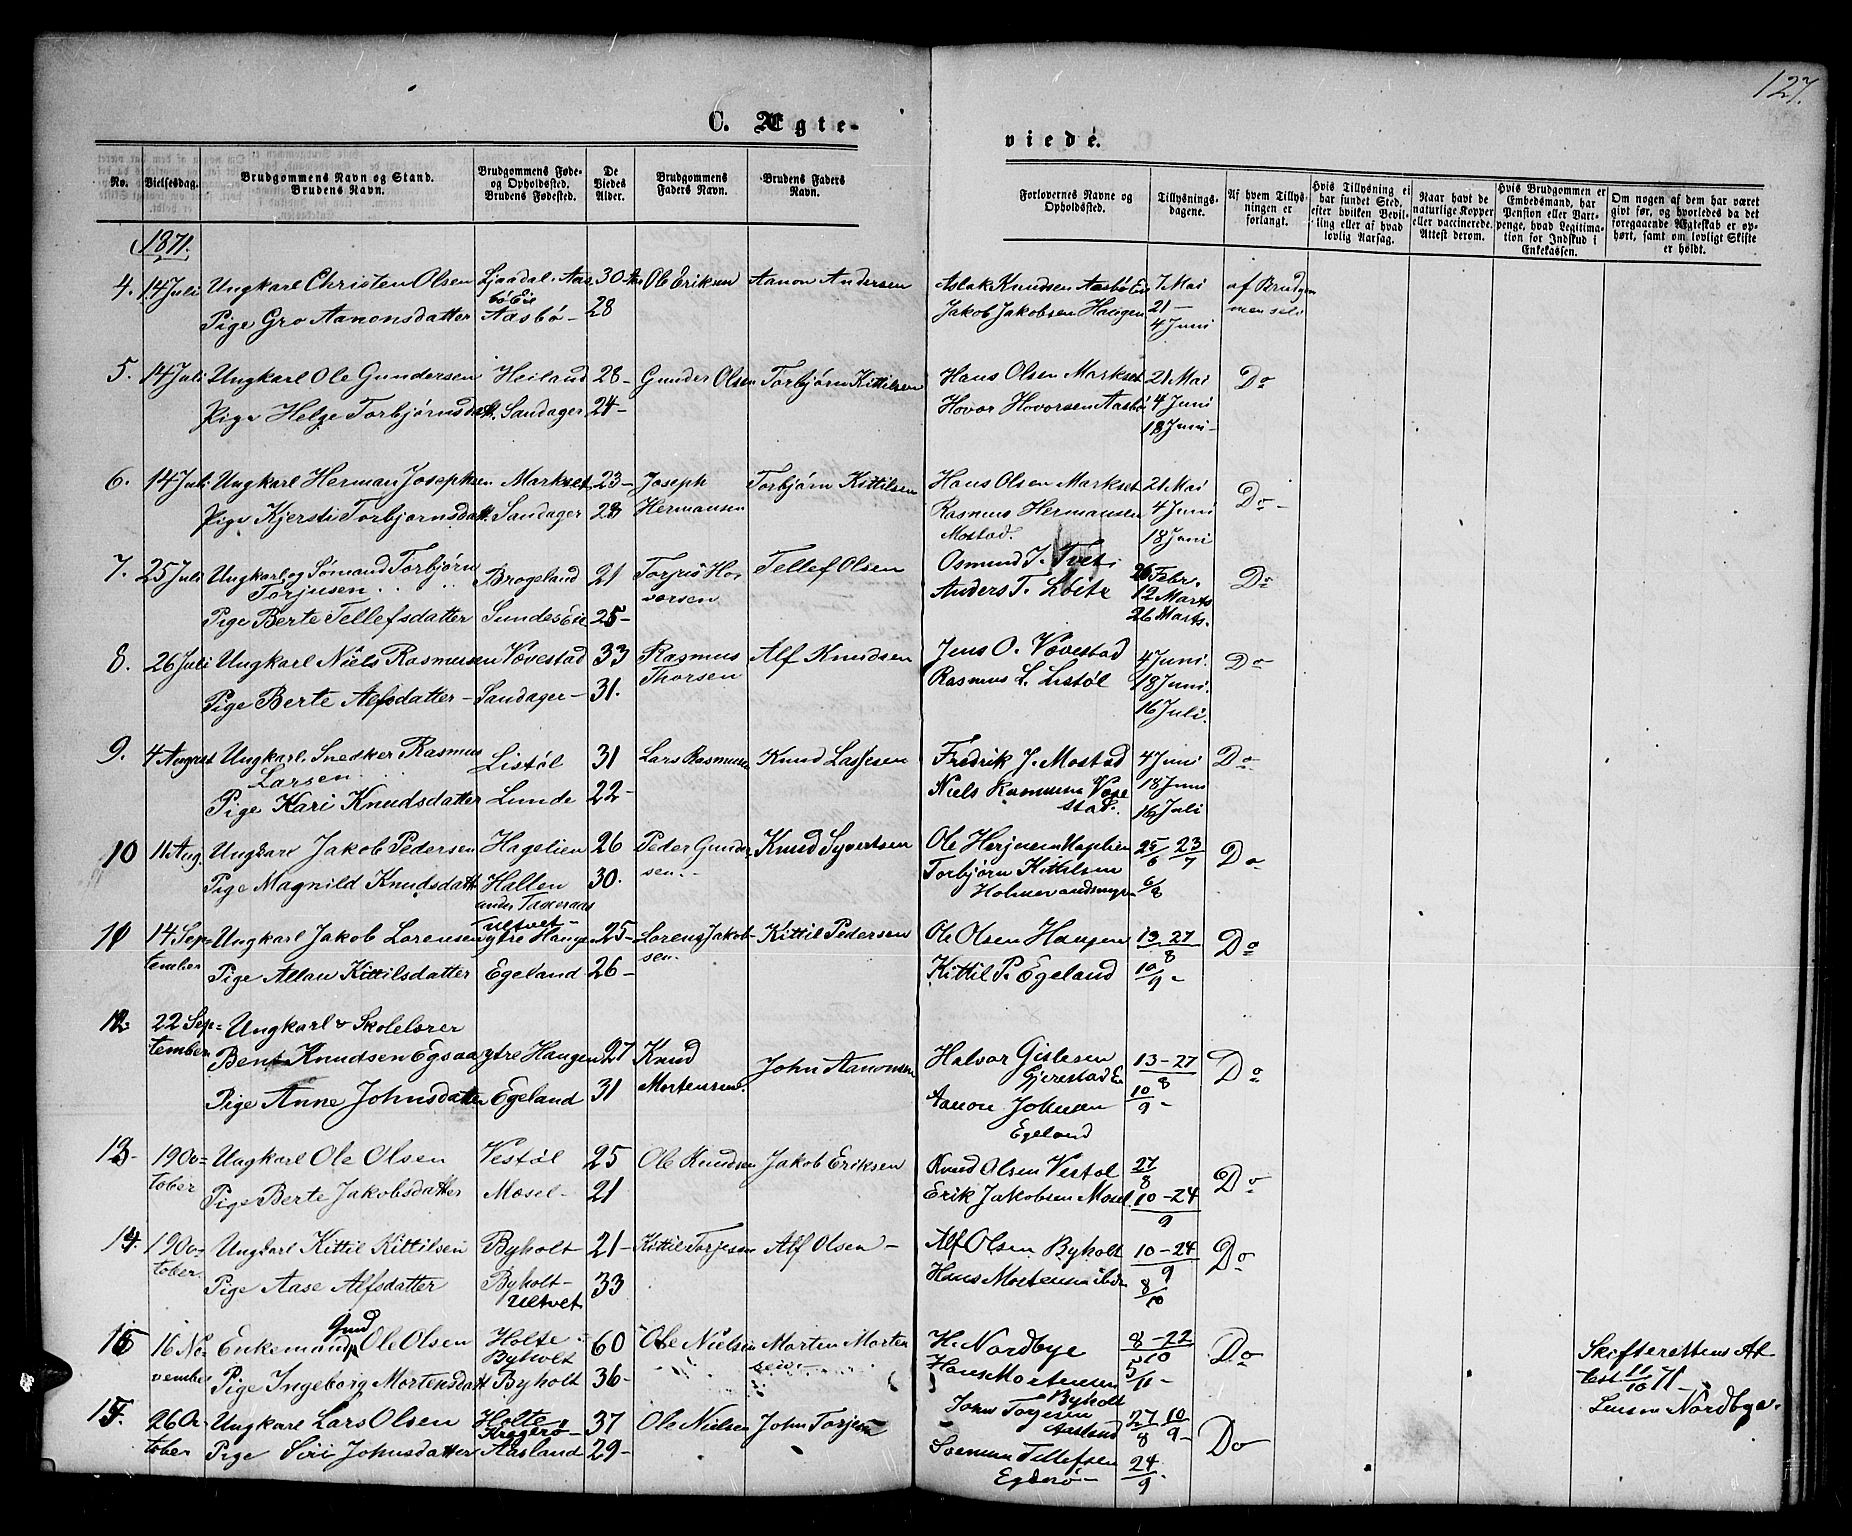 127.
C. Ægte-
viede.
No.
Vielsesdag.
Brudgommens Navn og Stand.
Brudens Navn.
Brudgommens Føde-
og Opholdsted.
Brudens Fødested.
De
Viedes
Alder.
Brudgommens
Faders Navn.
Brudens Faders
Navn.
Forlovernes Navne og
Opholdsted.
Tillysnings-
dagene.
Af hvem Tillys-
ningen er
forlangt.
Hvis Tillysning ei
har fundet Sted,
efter hvilken Bevil-
ling eller af hvad
lovlig Aarsag.
Naar havt de
naturlige Kopper
eller vaccinerede.
Attest derom.
Hvis Brudgommen er
Embedsmand, har
Pension eller Vart-
penge, hvad Legitima-
tion for Indskud i
Enkekassen.
Om nogen af dem har været
givt før, og hvorledes da det
foregaaende Ægteskab er op-
hørt, samt om lovligt Skifte
er holdt.
1871.
4. 14 Juli Ungkarl Christen Olsen Ljaadal Aas 30 Ole Eriksen Aanon Andersen Aslak Knudsen Aasbø 7 Mai af Brudgom
bø Eie
Pige Gro Aanonsdatter Aasbø - 28 Jakob Jakobsen Haugen 21 - men selv
4 Juni
5. 14 Juli Ungkarl Ole Gundersen Heiland 28- Gunder Olsen Torbjørn Kittilsen Hans Olsen Markset 21 Mai Do
Pige Helge Torbjørnsdatt. Sandager 24- Hovor Hovorsen Aasbø 4 Juni
18 Juni-
6. 14 Juli Ungkarl Herman Josephsen Markset 23- Joseph Torbjørn Kittilsen Hans Olsen Markset 21 Mai Do-
Pige Kjersti Torbjørnsdatt. Sandager 28 Hermansen Rasmus Hermansen 4 Juni
Mostad. 18 Juni
7. 25 Juli Ungkarl og Sømand Torbjørn Brogeland 21 Torjus Ho- Tellef Olsen Osmund J. Tveit 26 Febr. Do
Torjusen vorsen Anders T. 12 Marts
Pige Berte Tellefsdatter Sundes Eie 25- 26 Marts.
8. 26 Juli Ungkarl Niels Rasmussen Vævestad 33 Rasmus Alf Knudsen Jens O. Vævestad 4 Juni. Do
Thorsen Rasmus L. Listøl 18 Juni.
Pige Berte Alfsdatter - Sandager - 31. 16 Juli.
9. 4 August Ungkarl Snedker Rasmus Listøl 31 Lars Rasmusen Knud Lassesen Fredrik J. Mostad 4 Juni Do
Larsen
Pige Kari Knudsdatter Lunde 22- Niels Rasmusen Væve 18 Juni
stad. 16 Juli
10 11 Aug Ungkarl Jakob Pedersen Hagelien 26 Peder Gunder- Knud Syvertsen Ole 25/6 23/7 Do
sen Torbjørn Kittilsen
Pige Magnild Knudsdatt Hallen 30. 6/8
under
Ultvet-
11 14 Sep- Ungkarl Jakob Lorensen ytre Haugen 25- Lorens Jakob- Kittil Pedersen Ole Olsen Haugen 13-27/8 Do
tember sen
Pige Allau Kittilsdatter Egeland 26- Kittil P. Egeland 10/9 -
12- 22 Sep- Ungkarl & Skolelærer
tember Bent Knudsen Egsaa ytre Haugen 27 Knud John Aanonsen Halvor Gislesen 13-27/8 Do
Mortensen. Gjerestad E
Pige Anne Johnsdatter Egeland 31 Aanon Johnsen 10/9 -
Egeland
13- 19 Oc- Ungkarl Ole Olsen Vestøl 25 Ole Knudsen Jakob Eriksen Knud Olsen Vestøl 27/8 Do
tober Pige Berte Jakobsdatter Mæsel- 21 Erik Jakobsen Mæsel. 10-24/9
14. 19 Oc- Ungkarl Kittil Kittilsen Byholt 21- Kittil Torjesen Alf Olsen - Alf Olsen Byholt 10-24/9 Do
tober. Pige Aase Alfsdatter Byholt- 33 Hans Mortensen ibdn 8/10
Ultvet
15 16 No- Enkemand Gmd Ole Olsen Holte - 60 Ole Nielsen Morten Morten H. Nordbye 8-22/10 Do Skifterettens At
vember Byholt sen Hans Mortensen 5/11 - test 11/10 71 -
Pige Ingeborg Mortensdatt Byholt 36- Byholt Lensm Nordbye.
15. 26 Oc- Ungkarl Lars Olsen Holte, 37 Ole Nielsen John Torjesen John Torjesen 27/8 10/9 - Do
tober Kragerø- Aasland
Pige Siri Johnsdatter Aasland 29- Tellefsen 24/9